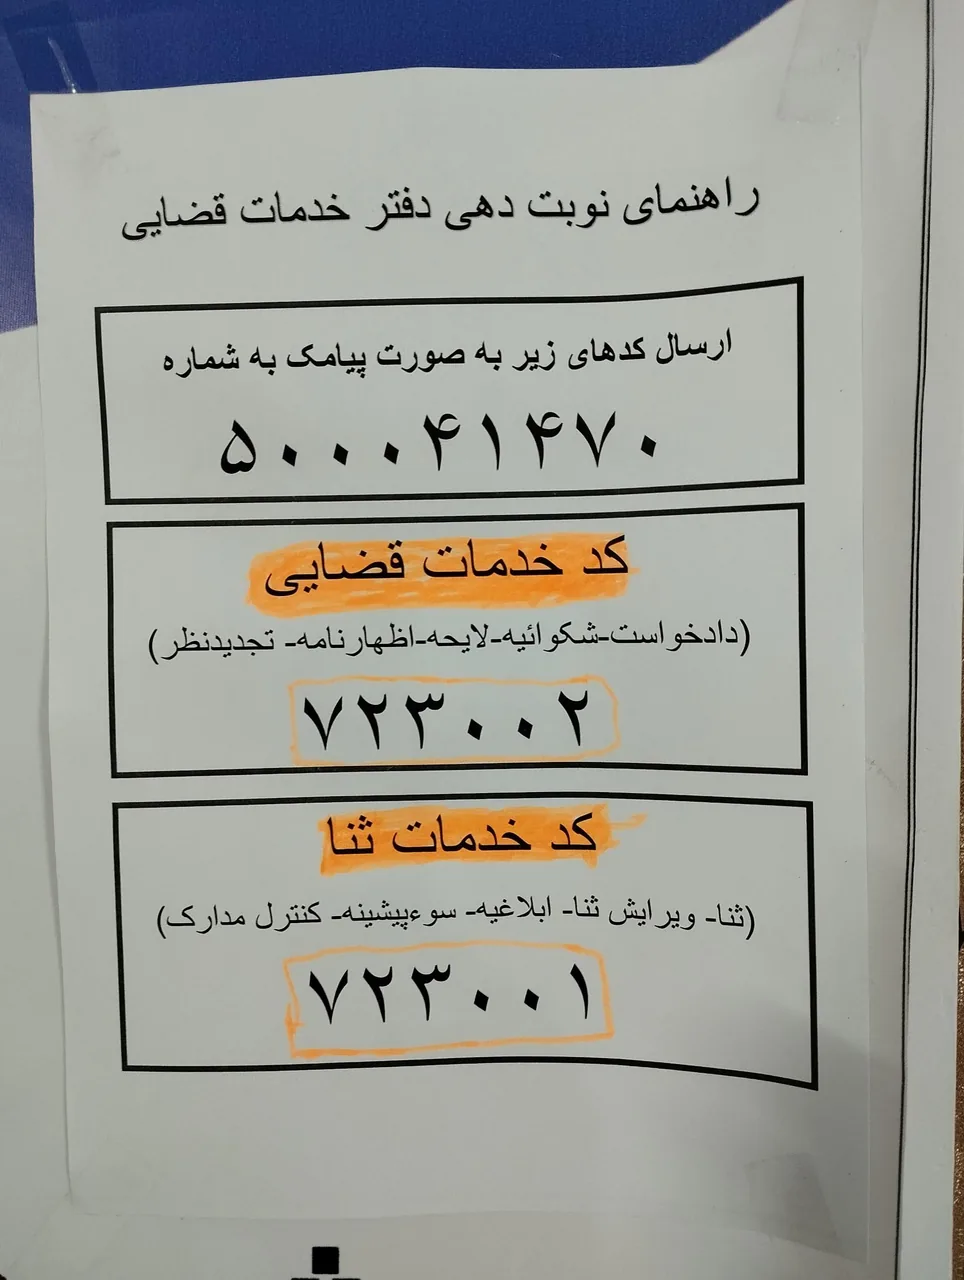 راهنمای نوبت دهی دفتر خدمات قضایی
ارسال کدهای زیر به صورت پیامک به شماره
۵۰۰۰۴۱۴۷۰
کد خدمات قضایی
(دادخواست-شکوائیه-لایحه-اظهارنامه- تجدیدنظر)
۷۲۳۰۰۲
کد خدمات ثنا
(ثنا- ویرایش ثنا- ابلاغیه- سوءپیشینه- کنترل مدارک)
۷۲۳۰۰۱